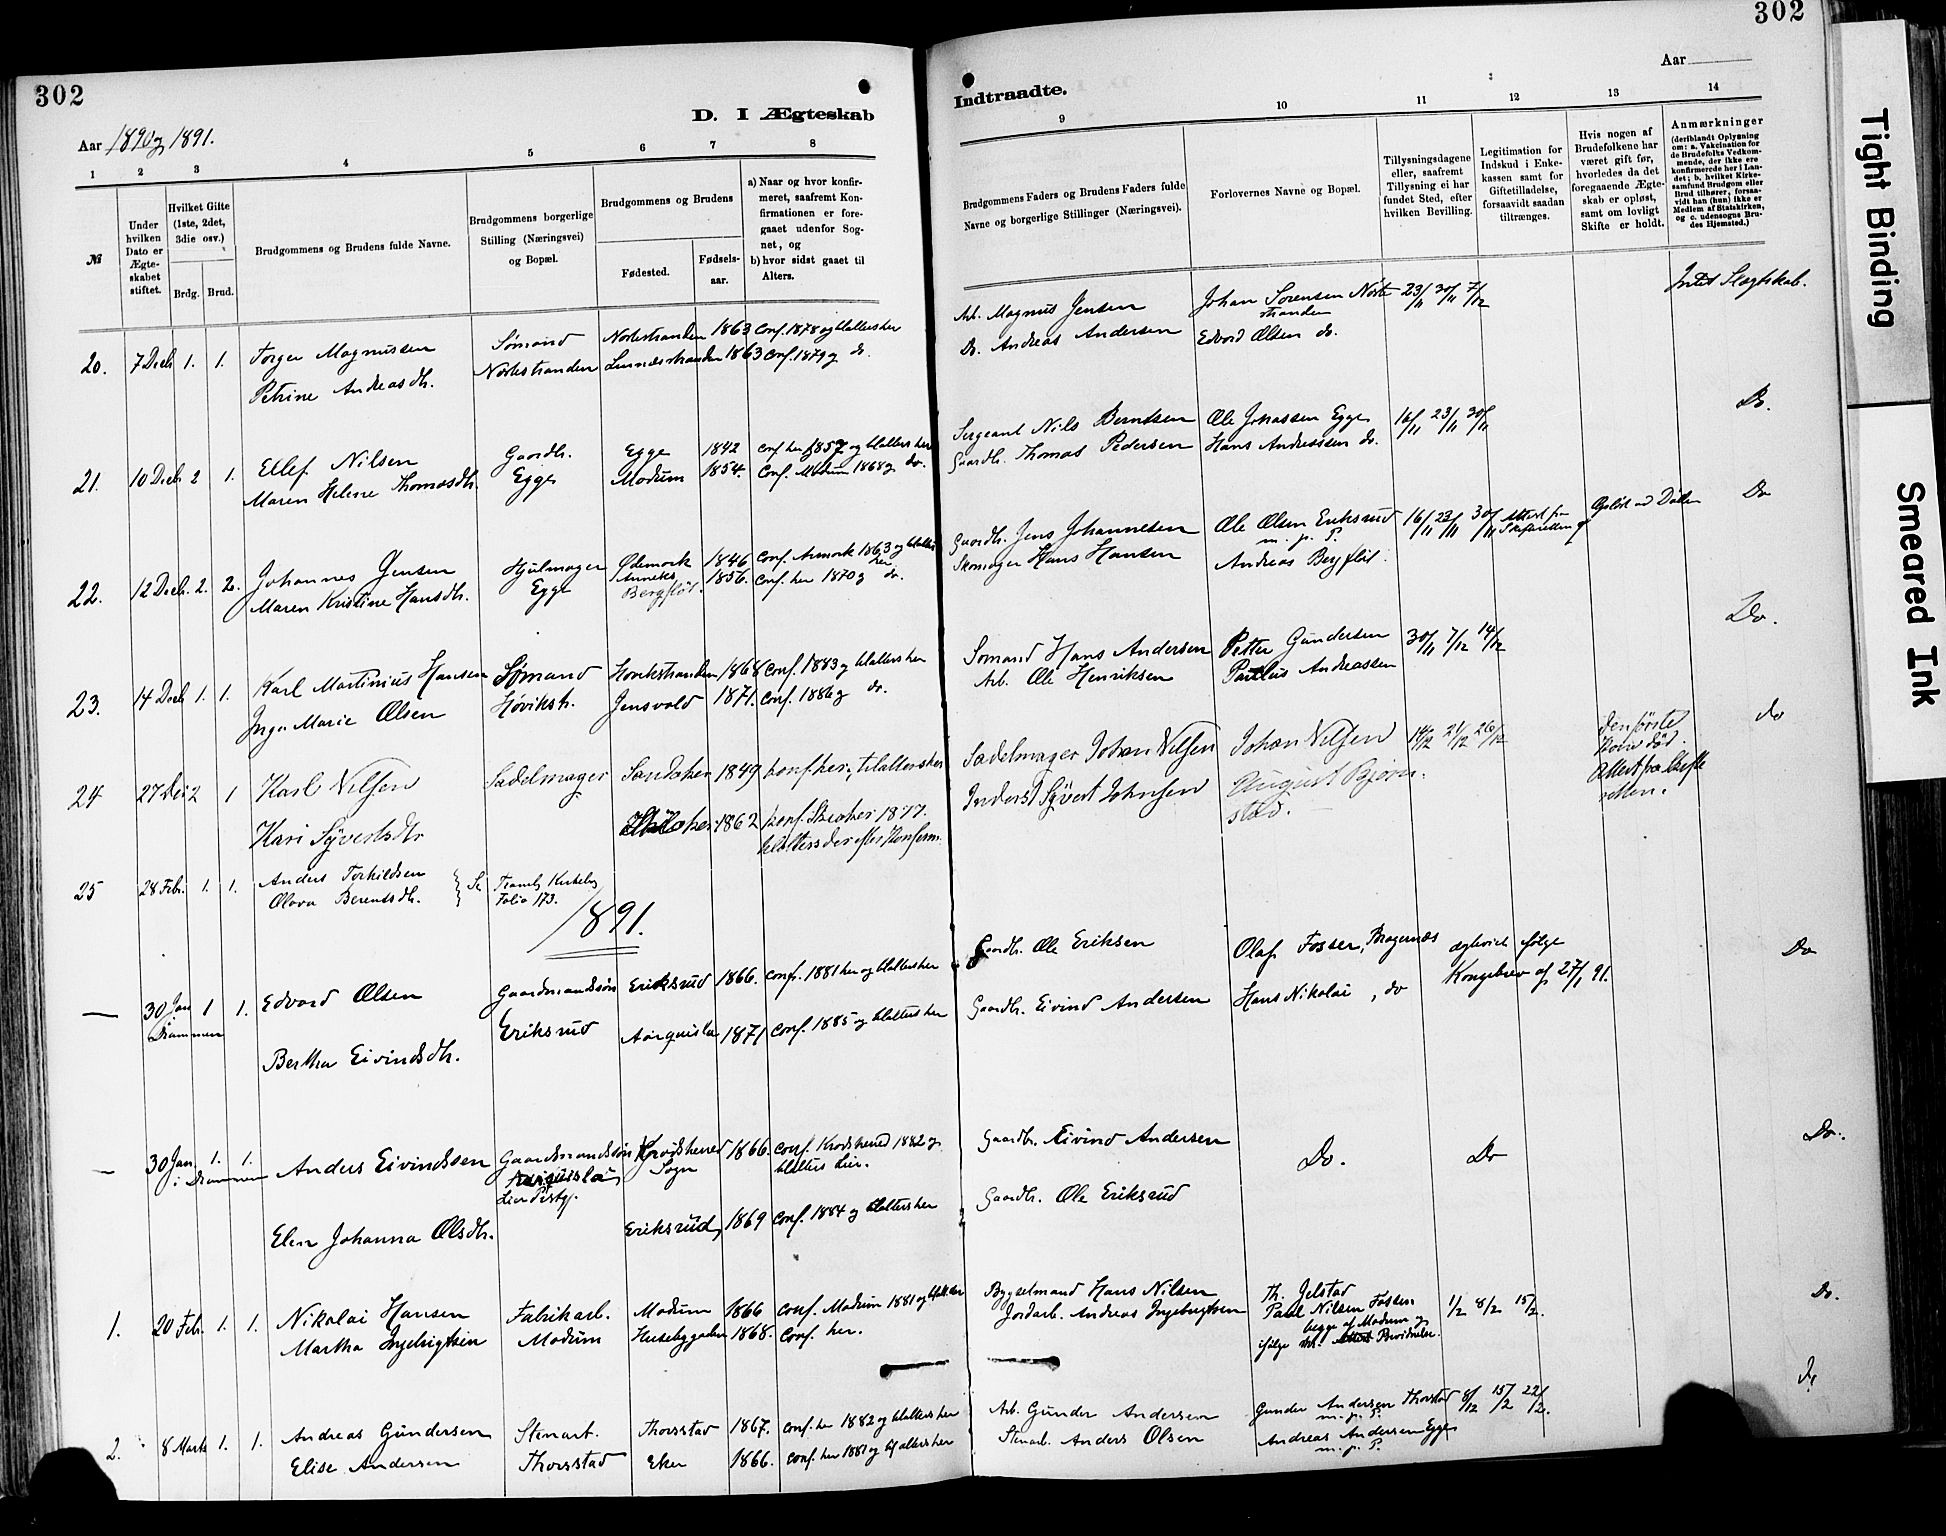 302
D. I Ægteskab
Aar 1890 og 1891.
1
2
3
4
5
6
7
8
№
Under hvilken Dato er Ægteskabet stiftet.
Hvilket Gifte (1ste, 2det, 3die osv.)
Brdg.
Brud.
Brudgommens og Brudens fulde Navne.
Brudgommens borgerlige Stilling (Næringsvei) og Bopæl.
Brudgommens og Brudens
Fødested.
Fødsels-aar.
a) Naar og hvor konfir-
meret, saafremt Kon-
firmationen er fore-
gaaet udenfor Sog-
net, og
b) hvor sidst gaaet til
Alters.
20. 7 Decb 1. 1. Torger Magnussen Sømand Nordstranden 1863 Conf. 1878 og blatters her
Petrine Andreasdtr. 1863 Conf. 1879 og do.
21. 10 Decb 2 1. Ellef Nilsen Gaardbr. Egge 1842 conf her 1857 og blatters her
Maren Helene Thomasdtr. Egge Modum 1854. Conf. Modum 1868 og do.
22. 12 Decb. 2. 2. Johannes Jensen Hjulmager Ødemark 1846 Conf. Aremark 1863 og blatters her
Maren Kristine Hansdtr. Egge Bergflöt. 1856. conf. her 1870 og do.
23. 14 Decb 1. 1. Karl Martinius Hansen Sømand 1868 Conf. 1883 og blatters her
Inga Marie Olsen Høvikstr. Jensvold 1871. Conf. 1886 og do.
24 27 Dec 2 1 Karl Nilsen Sadelmager Sandaker 1849 konf her, tilalters her
Kari Syvertsdtr 1862 konf. 1877.
25 28 Feb. 1. 1. Anders Torkildsen
Olava Berentsdtr. Se Tranby Kirkebog
Folio 173.
1891.
— 30 Jan 1 1. Edvard Olsen Gaardmandssøn Eriksrud 1866. conf. 1881 her og blatters her
Drammen Eriksrud
Bertha Eivindsdtr. 1871 Conf. 1885 og blatters her
— 30 Jan. 1. 1. Anders Eivindssen Gaardmandssøn Krødshered 1866 Conf. Krødshered 1882 og
i Drammen Sogn blatters Lier.
Elen Johanna Olsdtr. Eriksrud 1869 Conf. 1884 og blatters her
1. 20 Feb. 1. 1. Nikolai Hansen Fabrikarb. Modum 1866 Conf. Modum 1881 og
Martha Ingebrigtsen Modum 1868. Conf. her.
2. 8 Marts 1. 1. Andreas Gundersen Stenarb. Thorstad 1867. conf. her 1882 og blatters her
Elise Andersen Thorsstad Eker 1866. conf. her 1881 og blatters her
302
Indtraadte.
Aar
9
10
11
12
13
14
Brudgommens Faders og Brudens Faders fulde Navne og borgerlige Stillinger (Næringsvei).
Forlovernes Navne og Bopæl.
Tillysningsdagene eller, saafremt Tillysning ei har fundet Sted, efter hvilken Bevilling.
Legitimation for Indskud i Enkekassen samt for Giftetilladelse, forsaavidt saadan tiltrænges.
Hvis nogen af Brudefolkene har været gift før, hvorledes da det foregaaende Ægteskab er opløst, samt om lovligt Skifte er holdt.
Anmærkninger
(deriblandt Oplysning om: a. Vakcination for de Brudefolks Vedkommende, der ikke ere konfirmerede her i Landet; b. hvilket Kirkesamfund Brudgom eller Brud tilhører, forsaavidt han (hun) ikke er Medlem af Statskirken, og c. udensogns Brudes Hjemsted.)
Arb. Magnus Jensen Johan Sørensen Nordstranden 23/11 30/11 7/12 Intet Slegtskab.
Do. Andreas Andersen Edvard Olsen do.
Sergeant Nils Berntsen Ole Johassen Egge 16/11 23/11 30/11 Do.
Gaardbr. Thomas Pedersen Hans Andreassen do.
Gaardbr. Jens Johannesen Ole Olsen Eriksrud 16/11 23/11 30/11 Attest fra Skifteretten Opløst ved Døden Do
m. p. P.
Skomager Hans Hansen Andreas Bergflöt.
Sømand Hans Andersen Petter Gundersen 30/11 7/12 14/12 Do.
Arb. Ole Henriksen Paulus Andreassen
Sadelmager Johan Nilsen Johan Nilsen 14/12 21/12 26/12 Den første Kone død. Attest fra Skifteretten. do
Inderst Syvert Johnsen August Bjørnstad.
Gaardbr. Ole Eriksen Olaf Fosser, Bragernæs ifølge Do
Kongebrev af 27/1 91.
Gaardbr. Eivind Andersen Hans Nikolai, do
Gaardbr. Eivind Andersen Do. Do Do.
Gaardbr. Ole Eriksrud
Bygselmand Hans Nilsen Th. Jelstad 1/2 8/2 15/2. Do.
Jordarb. Andreas Ingebrigtsen Paul Nilsen Fossen
begge af Modum og
ifølge
Arb. Gunder Andersen Gunder Andersen Thorstad 8/12 15/2 22/2. Do
m. p. P.
Stenarb. Anders Olsen Andreas Andersen Egge
m. p. P.
Tight Binding
Smeared Ink